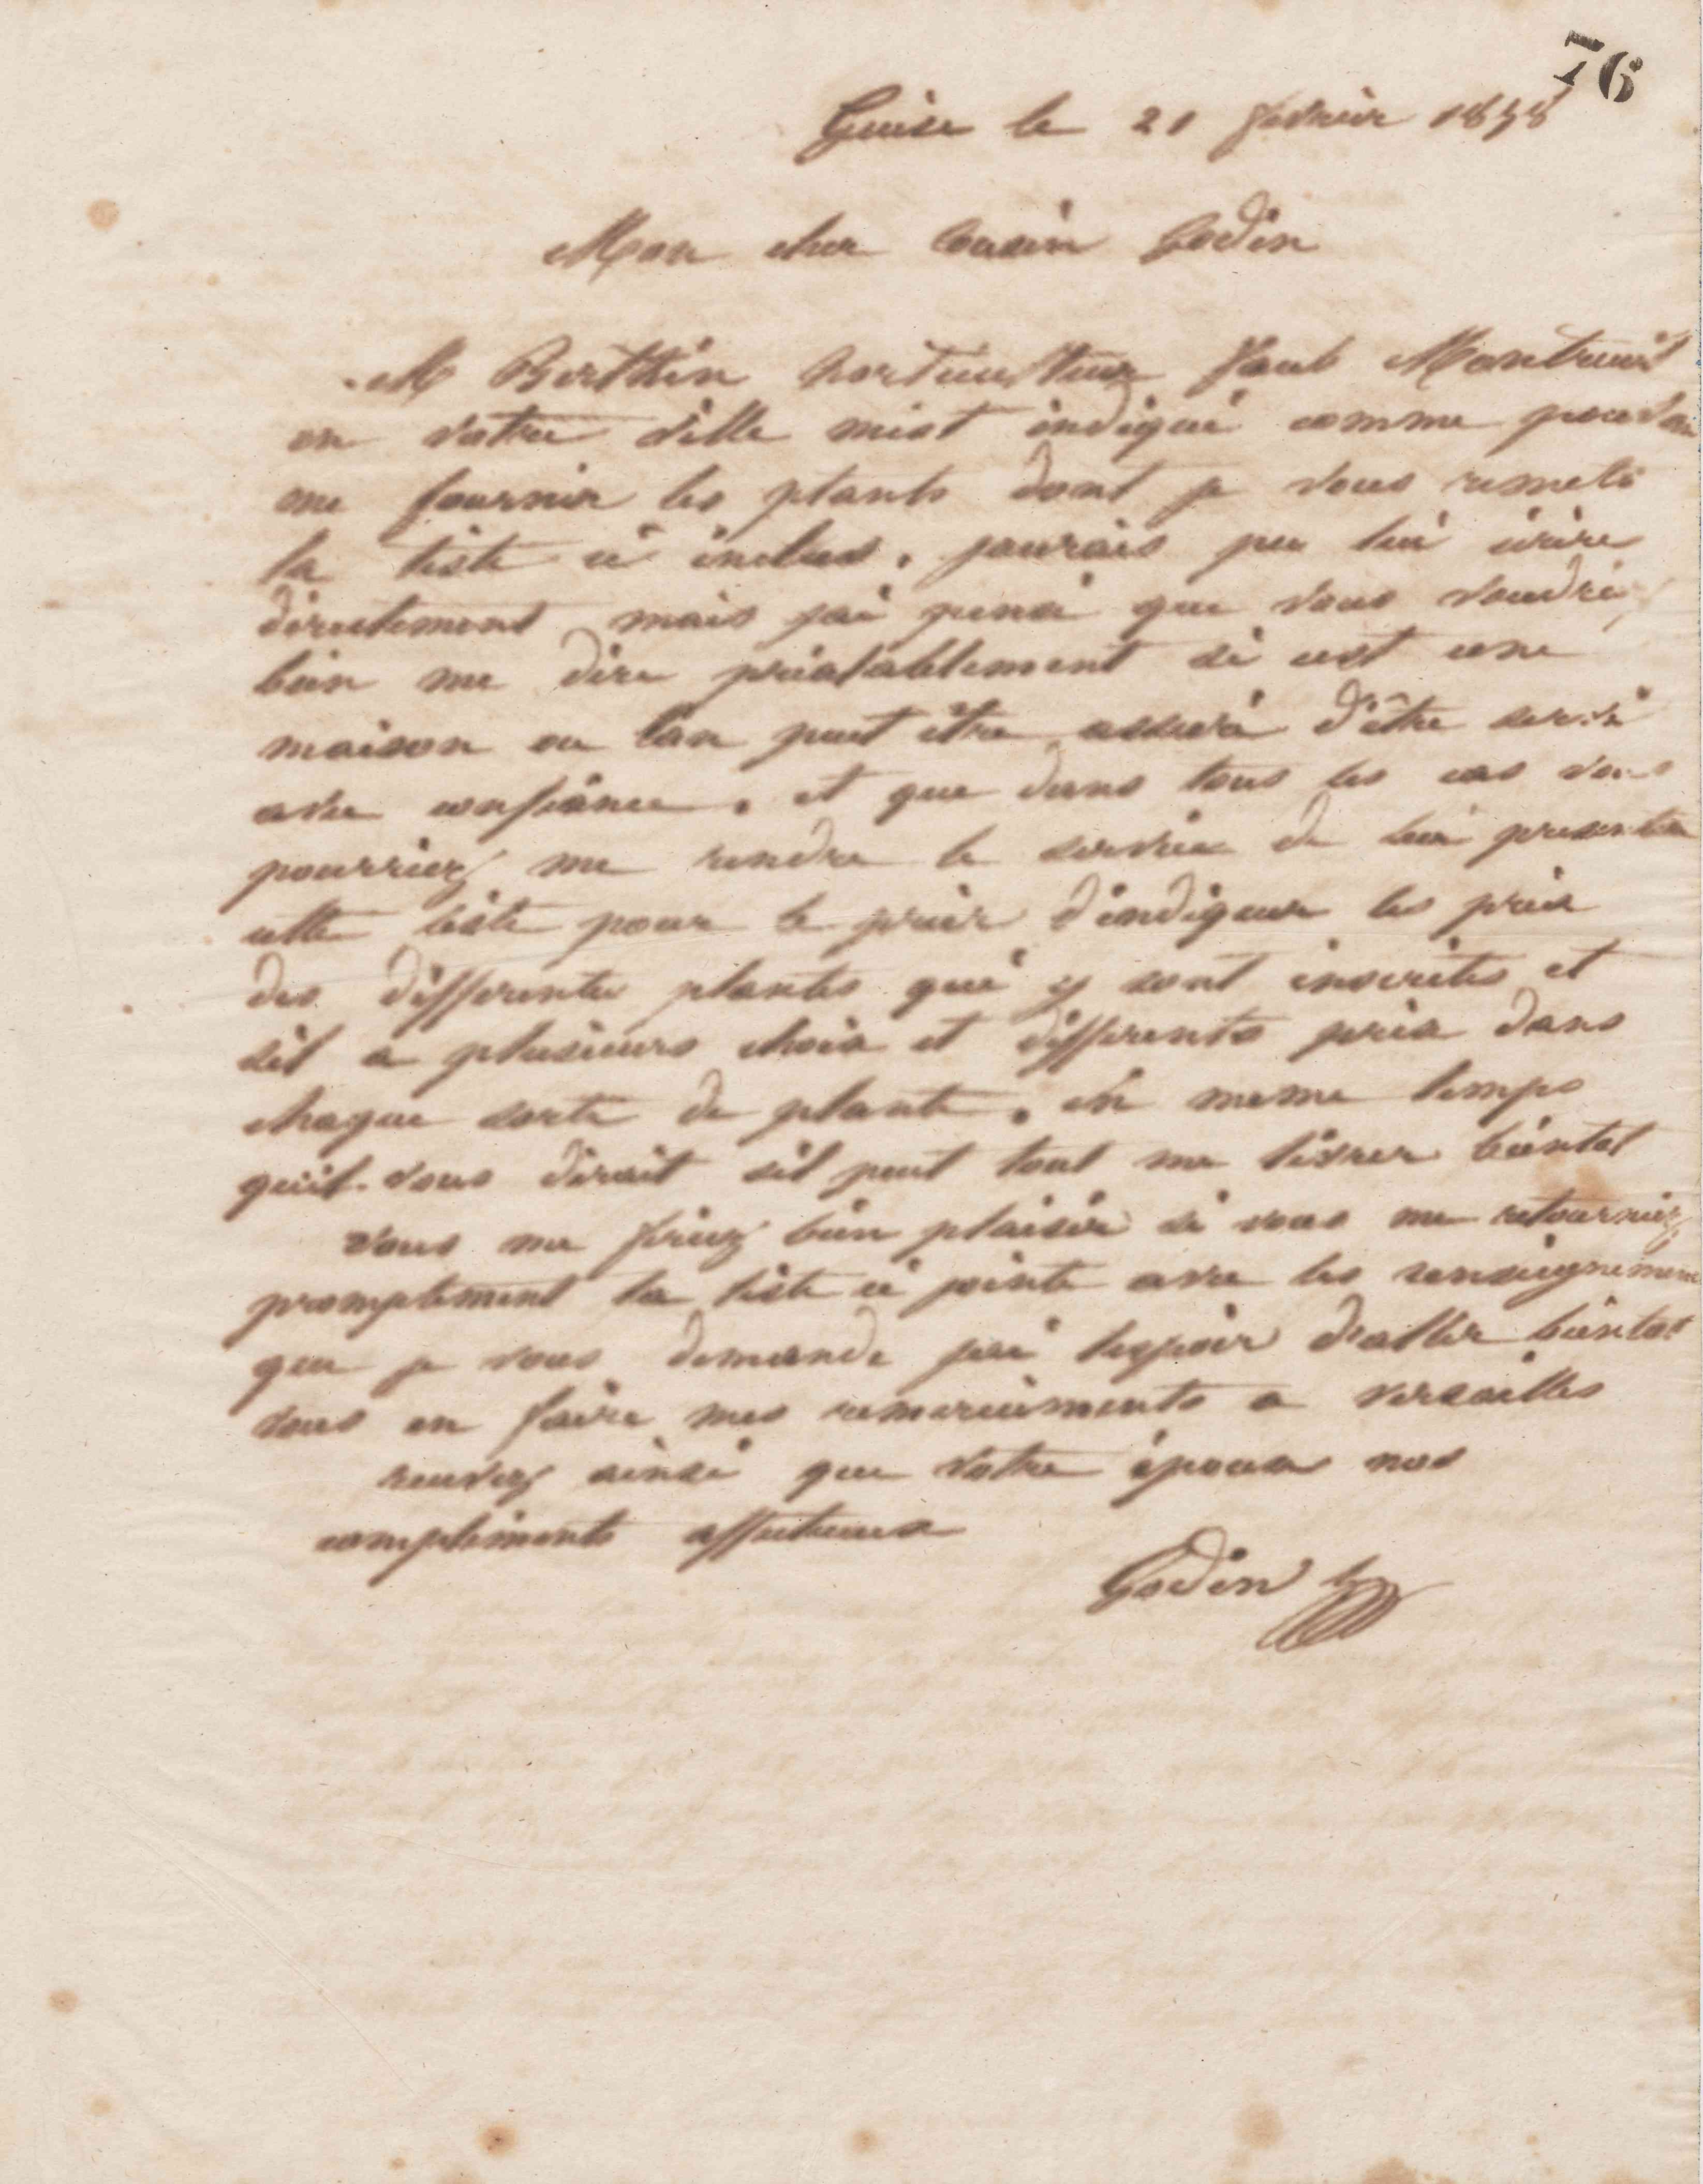 76
Guise le 21 fevrier 1858
Mon cher Cousin Godin
M Berthin horticulteur faub Montreuil
en votre ville mest indiqué comme pouvan
me fournir les plants dont je vous remets
la liste ci inclus. jaurais pu lui écrire
directement mais jai pensé que vous voudriez
bien me dire préalablement si cest une
maison ou lon peut être assuré d'être servi
avec confiance. et que dans tous les cas vous
pourriez me rendre le service de lui presenter
cette liste pour le prier d'indiquer les prix
des differentes plantes qui y sont inscrites et
sil a plusieurs choix et differents prix dans
chaque sorte de plante. en meme temps
quil vous dirait sil peut tout me livrer bientot
vous me feriez bien plaisir si vous me retourniez
promptement la liste ci jointe avec les renseignements
que je vous demande jai lespoir d'aller bientot
vous en faire mes remerciements a versailles
recevez ainsi que votre épouse nos
compliments affectueux
Godin